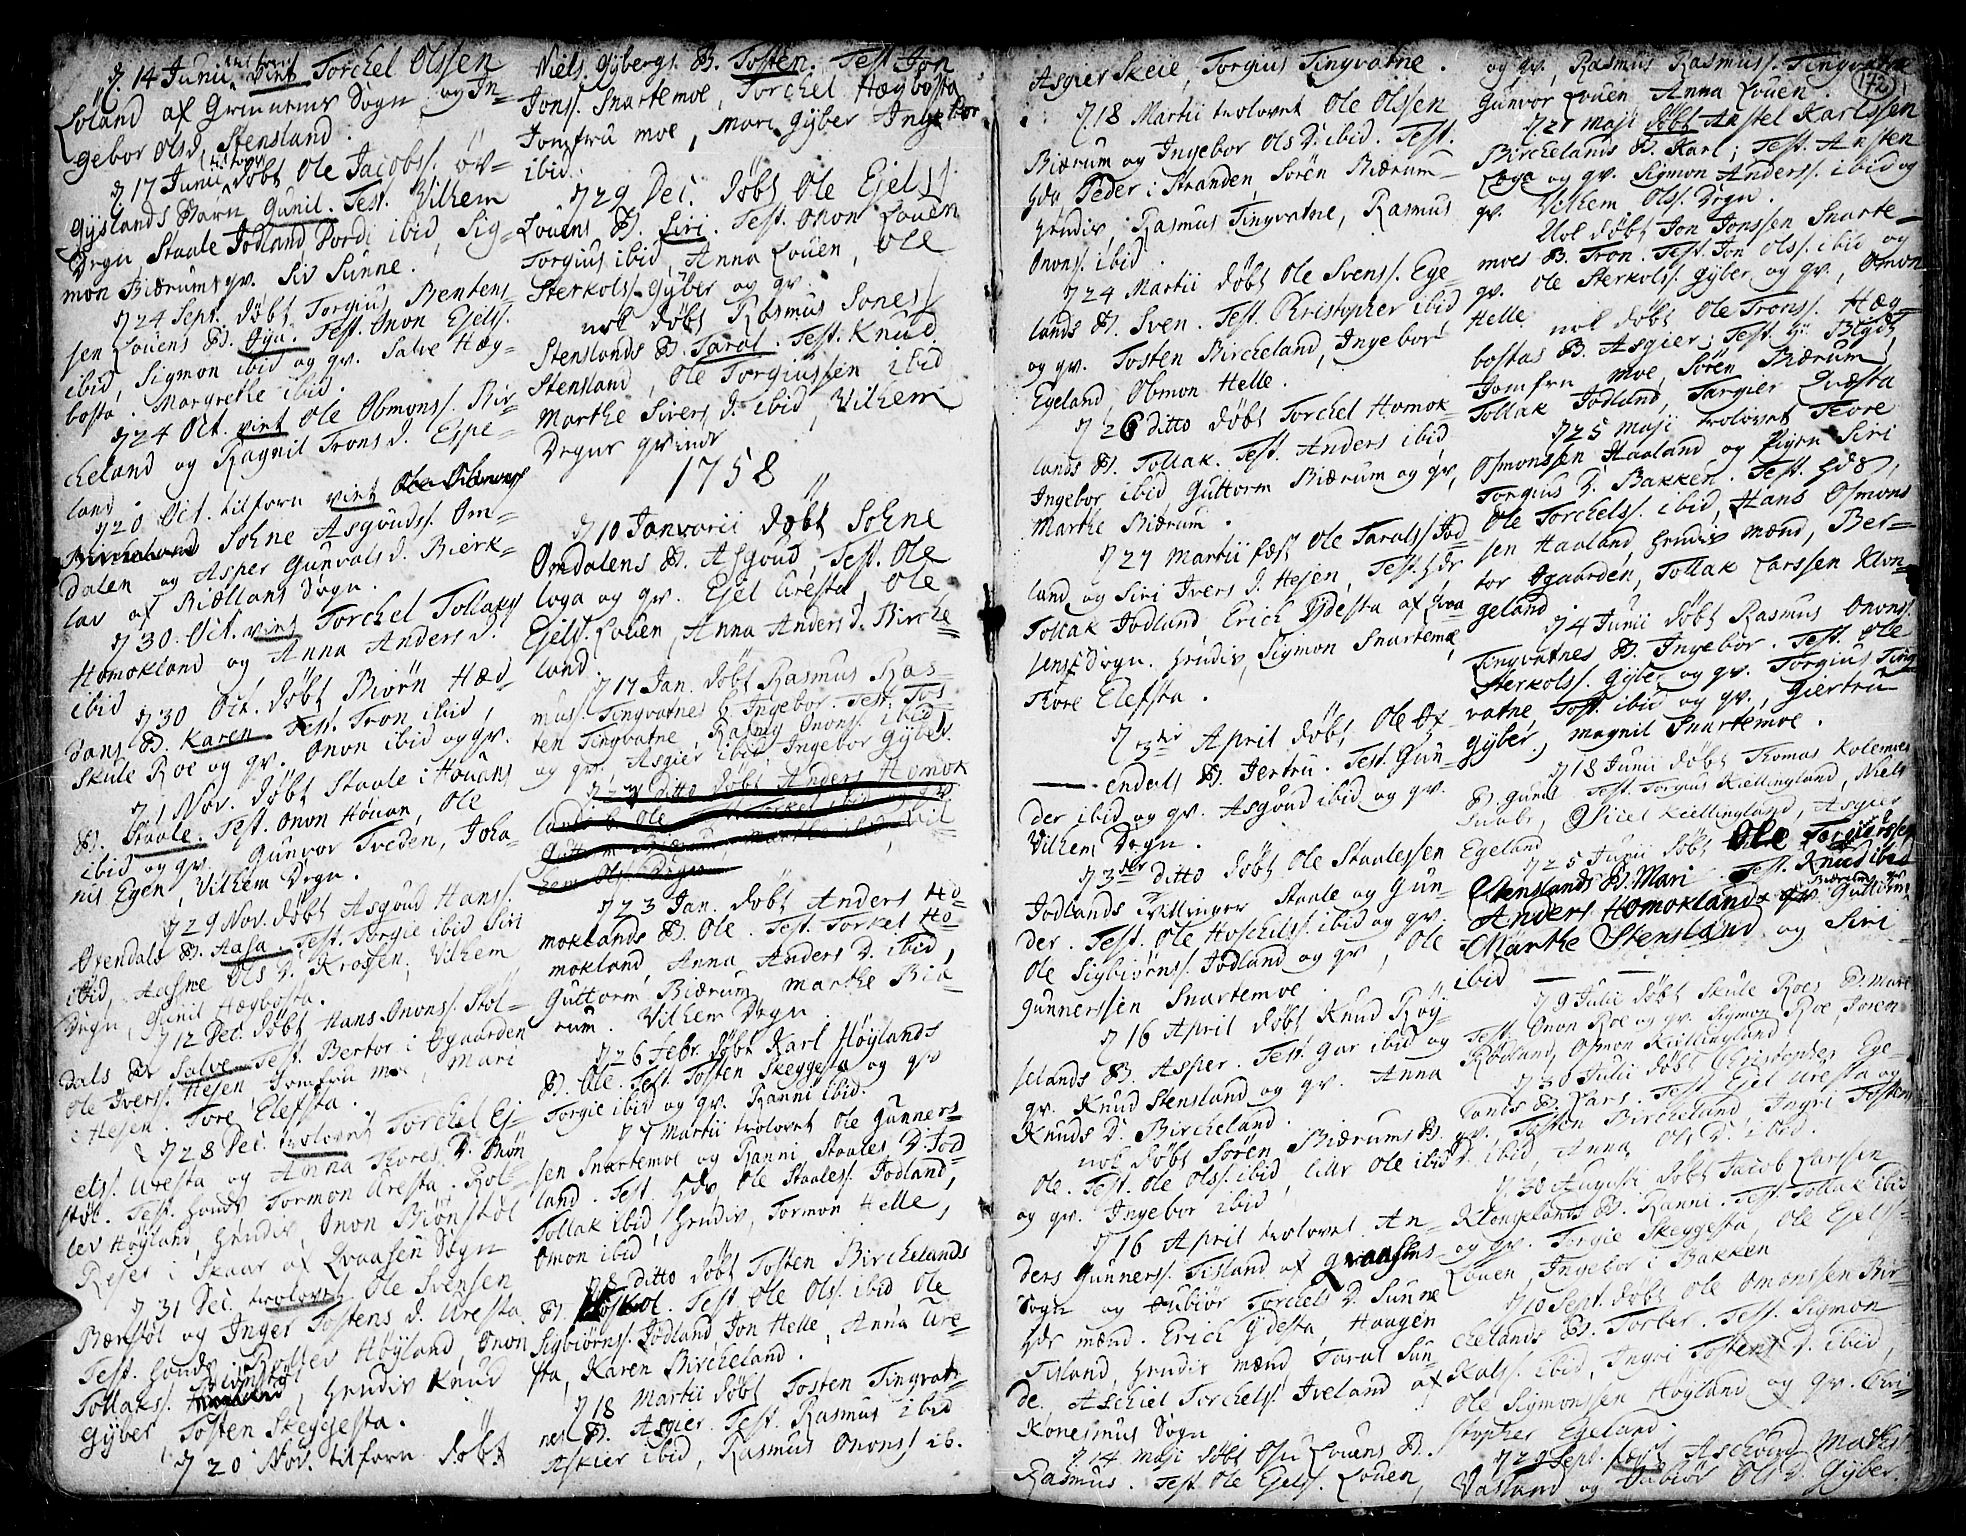 d. 14 Junii viet Torchel Olssen
Loland af Grinnems Sogn og In-
gebor Olsd. Stensland.
d. 17 Junii døbt Ole Jacobss. Øv-
Gyslands Barn Gunil. Test. Vilhem
Degn, Staale Jodland Bordi ibid, Sig-
mon Biærums gv. Siv Sunne.
d 24 Sept. døbt Torgius Bentens-
sen Louens B. Øya. Test. Onon Ejels.
ibid, Sigmon ibid og gv. Salve Hæg-
bosta. Margrethe ibid.
d 24 Oct. viet Ole Obmons. Bir-
cheland og Ragnil Trons d. Espe-
land
d 20 Oct. tilforn viet
Sohne Asgouds. Om-
dalen og Asper Gunvals d. Bierk-
lav af Biællans Sogn.
d 30. Oct. viet Torchel Tollaks
Homokland og Anna Anders d.
ibid
d 30 Oct. døbt Biørn Hæd-
dans B. Karen Test. Tron ibid,
Skule Roe og gv. Onon ibid og gv.
d 1 Nov. døbt Staale i Houans
B. Staale. Test. Onon Houan, Ole
ibid og gv. Gunvor Tveden, Joha-
nis Egen, Vilhem Degn.
d 29 Nov. døbt Asgoud Hans.
Ørendals B. Aasa. Test. Torgie ibid Siri
ibid, Aasne Ols d. Krogen, Vilhem
Degn, Gunil Hægbosta.
d 12 Dec. døbt Hans Onons. Stol-
dals B. Salve. Test. Bertor i Øgaarden
Ole Ivers. Hesen Jomfru moe, Mari
i Hesen. Tore Elefsta.
d 28 Dec. trolovet Torchel Ej-
els. Uresta og Anna Thores d. Biøn
støl. Test. hands Tormon Uresta. Rol-
lev Høyland, hendis, Onon Biønstøl
Rejer i Skaar af Qvaasen Sogn
d 31 Dec. trolovet Ole Svensen
Bærstøl og Inger Tostens d. Uresta
Test. hands Rollev Høyland, Onon
Tollaks. Biønstøl, hendis Knud
Gyber Tosten Skeggesta.
d 20 Nov. tilforn døbt
Niels Gybergs B. Tosten. Test. Jon
Jons. Snartemoe, Torchel Hægbosta
Jomfru moe, Mari Gyber Ingebor
ibid.
d 29 Dec. døbt Ole Ejels.
Louens B. Siri. Test. Onon Louen
Torgius ibid, Anna Louen, Ole
Sterkols. Gyber og gv.
nok døbt Rasmus Sones
Stenslands B. Tarol. Test. Knud
Stensland, Ole Torgiussen ibid
Marthe Sivers d. ibid, Vilhem
Degns qvinde
1758
d 10 Janvarii døbt Sohne
Omdalens B. Asgoud, Test. Ole
Loga og gv. Ejel Uresta, Ole
Ejels. Louen, Anna Anders d. Birche-
land.
d 17 Jan. døbt Rasmus Ras-
mus. Tingvatnes B Ingebor. Test. Tos
ten Tingvatne, Rasmus Onons. ibid
og gv. Asgier ibid, Ingebor Gyber
d 23 ditto døbt Anders Homok
lands B. Ole
Guttorm Biærum, Marthe ibid, Vil-
hem Ols. Degn
d 23 Jan. døbt Anders Ho
moklands B. Ole. Test. Torkel Ho-
mokland, Anna Anders d. ibid,
Guttorm Biærum, Marthe Biæ-
rum. Vilhem Degn
d 26 Febr. døbt Karl Høylands
B. Ole. Test. Tosten Skeggesta og gv
Torgie ibid og gv. Ranni ibid.
d 7 Martii trolovet Ole Gunners-
sen Snartemoe og Ranni Staales d. Jod
land. Test. hds, Ole Staales. Jodland,
Tollak ibid, hendis, Tormon Helle,
Omon ibid
d 8 ditto døbt Tosten Birchelands
B. Test. Ole Ols. ibid Ole
Sigbiørns. Jodland Jon Helle, Anna Ure-
sta, Karen Bircheland.
d 18 Martii døbt Tosten Tingvat-
nes B. Asgier. Test. Rasmus ibid
Askier ibid, Rasmus Onons. ib.
Asgier Skeie, Torgius Tingvatne.
d. 18 Martii trolovet Ole Olssen
Biærum og Ingebor Ols d. ibid. Test.
hds Peder i Stranden, Søren Biærum
hendis, Rasmus Tingvatne, Rasmus
Onons. ibid.
d 24 Martii døbt Ole Svens. Ege-
lands B. Sven. Test. Christopher ibid
og gv. Tosten Bircheland, Ingebor
Egeland, Obmon Helle.
d 26 ditto døbt Torchel Homok-
lands B. Tollak. Test. Anders ibid
Ingebor ibid Guttorm Biærum og gv,
Marthe Biærum.
d 27 Martii fæst Ole Tarals. Jod-
land og Siri Ivers d. Hesen, Test. hds
Tollak Jodland Erich Ydesta af Qvaa
sens Sogn. hendis, Sigmon Snartemoe
Thore Elefsta.
d 3der April døbt Ole Ør-
endals B. Jertru. Test. Gun-
der ibid og gv. Asgoud ibid og gv.
Vilhem Degn.
d 3der ditto døbt Ole Staalessen
Jodlands Tvillinger Staale og Gun-
der. Test. Ole Hoschels. ibid og gv.
Ole Sigbiørns. Jodland og gv, Ole
Gunnerssen Snartemoe
d 16 April døbt Knud Røy-
selands B. Asper. Test. Gar ibid og
gv. Knud Stensland og gv. Anna
Knuds d. Bircheland.
nok døbt Søren Biærums B
Ole. Test. Ole Ols. ibid, lille Ole ibid
og gv. Ingebor ibid
d 16 April trolovet An-
ders Gunners. Tisland af Qvaasens
Sogn og Aubiør Torchels d. Sunne
hds mænd. Erich Ydesta, Haagen
Tisland, hendis mænd Taral Sun-
de, Aschiel Torchels. Iveland af
Konesmus Sogn
d. 14 Maji døbt Osu Louens B.
Rasmus. Test. Ole Ejels. Louen,
og gv, Rasmus Rasmus. Tingvatne
172
Gunvor Louen Anna Louen.
d 21 Maji døbt Anstel Karlssen
Birchelands B. Karl; Test. Ansten
Loga og gv. Sigmon Anders. ibid og
gv. Vilhem Ols. Degn.
Nok døbt Jon Jonssen Snarte-
moes B. Tron. Test. Jon Ols. ibid og
gv. Ole Sterkols. Gyber og gv., Omon
Helle
nok døbt Ole Trons. Hæg
bostas B. Asgier. Test. Hr. Blydt,
Jomfru moe, Søren Biærum
Tollak Jodland, Targier Qvæsta
d 25 Maji trolovet Tore
Osmonssen Haaland og Pigen Siri
Torgius d. Bakken. Test. hds
Ole Torchels. ibid, Hans Osmons
sen Haaland, hendis mænd, Ber-
tor Øgaarden, Tollak Larssen Klon-
geland
d 4 Junii døbt Rasmus Onons.
Tingvatnes B. Ingebor. Test. Ole
Sterkols. Gyber og gv. Torgius Ting-
vatne, Tost. ibid og gv., Giertru
Gyber, Magnil Snartemoe.
d 18 Junii døbt Thomas Kolemoes
B. Gunil Test. Torgius Kiellingland, Niels
Kiellingland, Asgier
Egeland
d 25 Junii døbt Ole Torgiussen
Stenslands B. Mari. Test. Knud ibid
Anders Homokland gv Guttorm Biærum
Marthe Stensland og Siri
ibid
d 9 Julii døbt Skule Roes B. Mari
Test. Onon Roe og gv. Sigmon Roe, Joren
Rødland, Osmon Kiellingland
d 30 Julii døbt Christopher Ege-
lands B. Lars. Test. Ejel Uresta og
gv., Tosten Bircheland, Ingri Tosten
d. ibid, Anna Ols d. i Ord.
d 30 Augusti døbt Jacob Larssen
Klongelands B. Ranni. Test. Tollak ibid
og gv. Torgie Skeggesta, Ole Ejels.
Louen, Ingebor i Bakken
d 10 Sept. døbt Ole Omonssen Bir-
chelands B. Torber. Test. Sigmon
Kals. ibid, Ingri Tostens d. ibid,
Ole Sigmonssen Høyland og gv. Chri-
stopher Egeland
d 29 Sept. viet Aschoud Mads.
Vasland og Aubiør Ols d. Gyber.